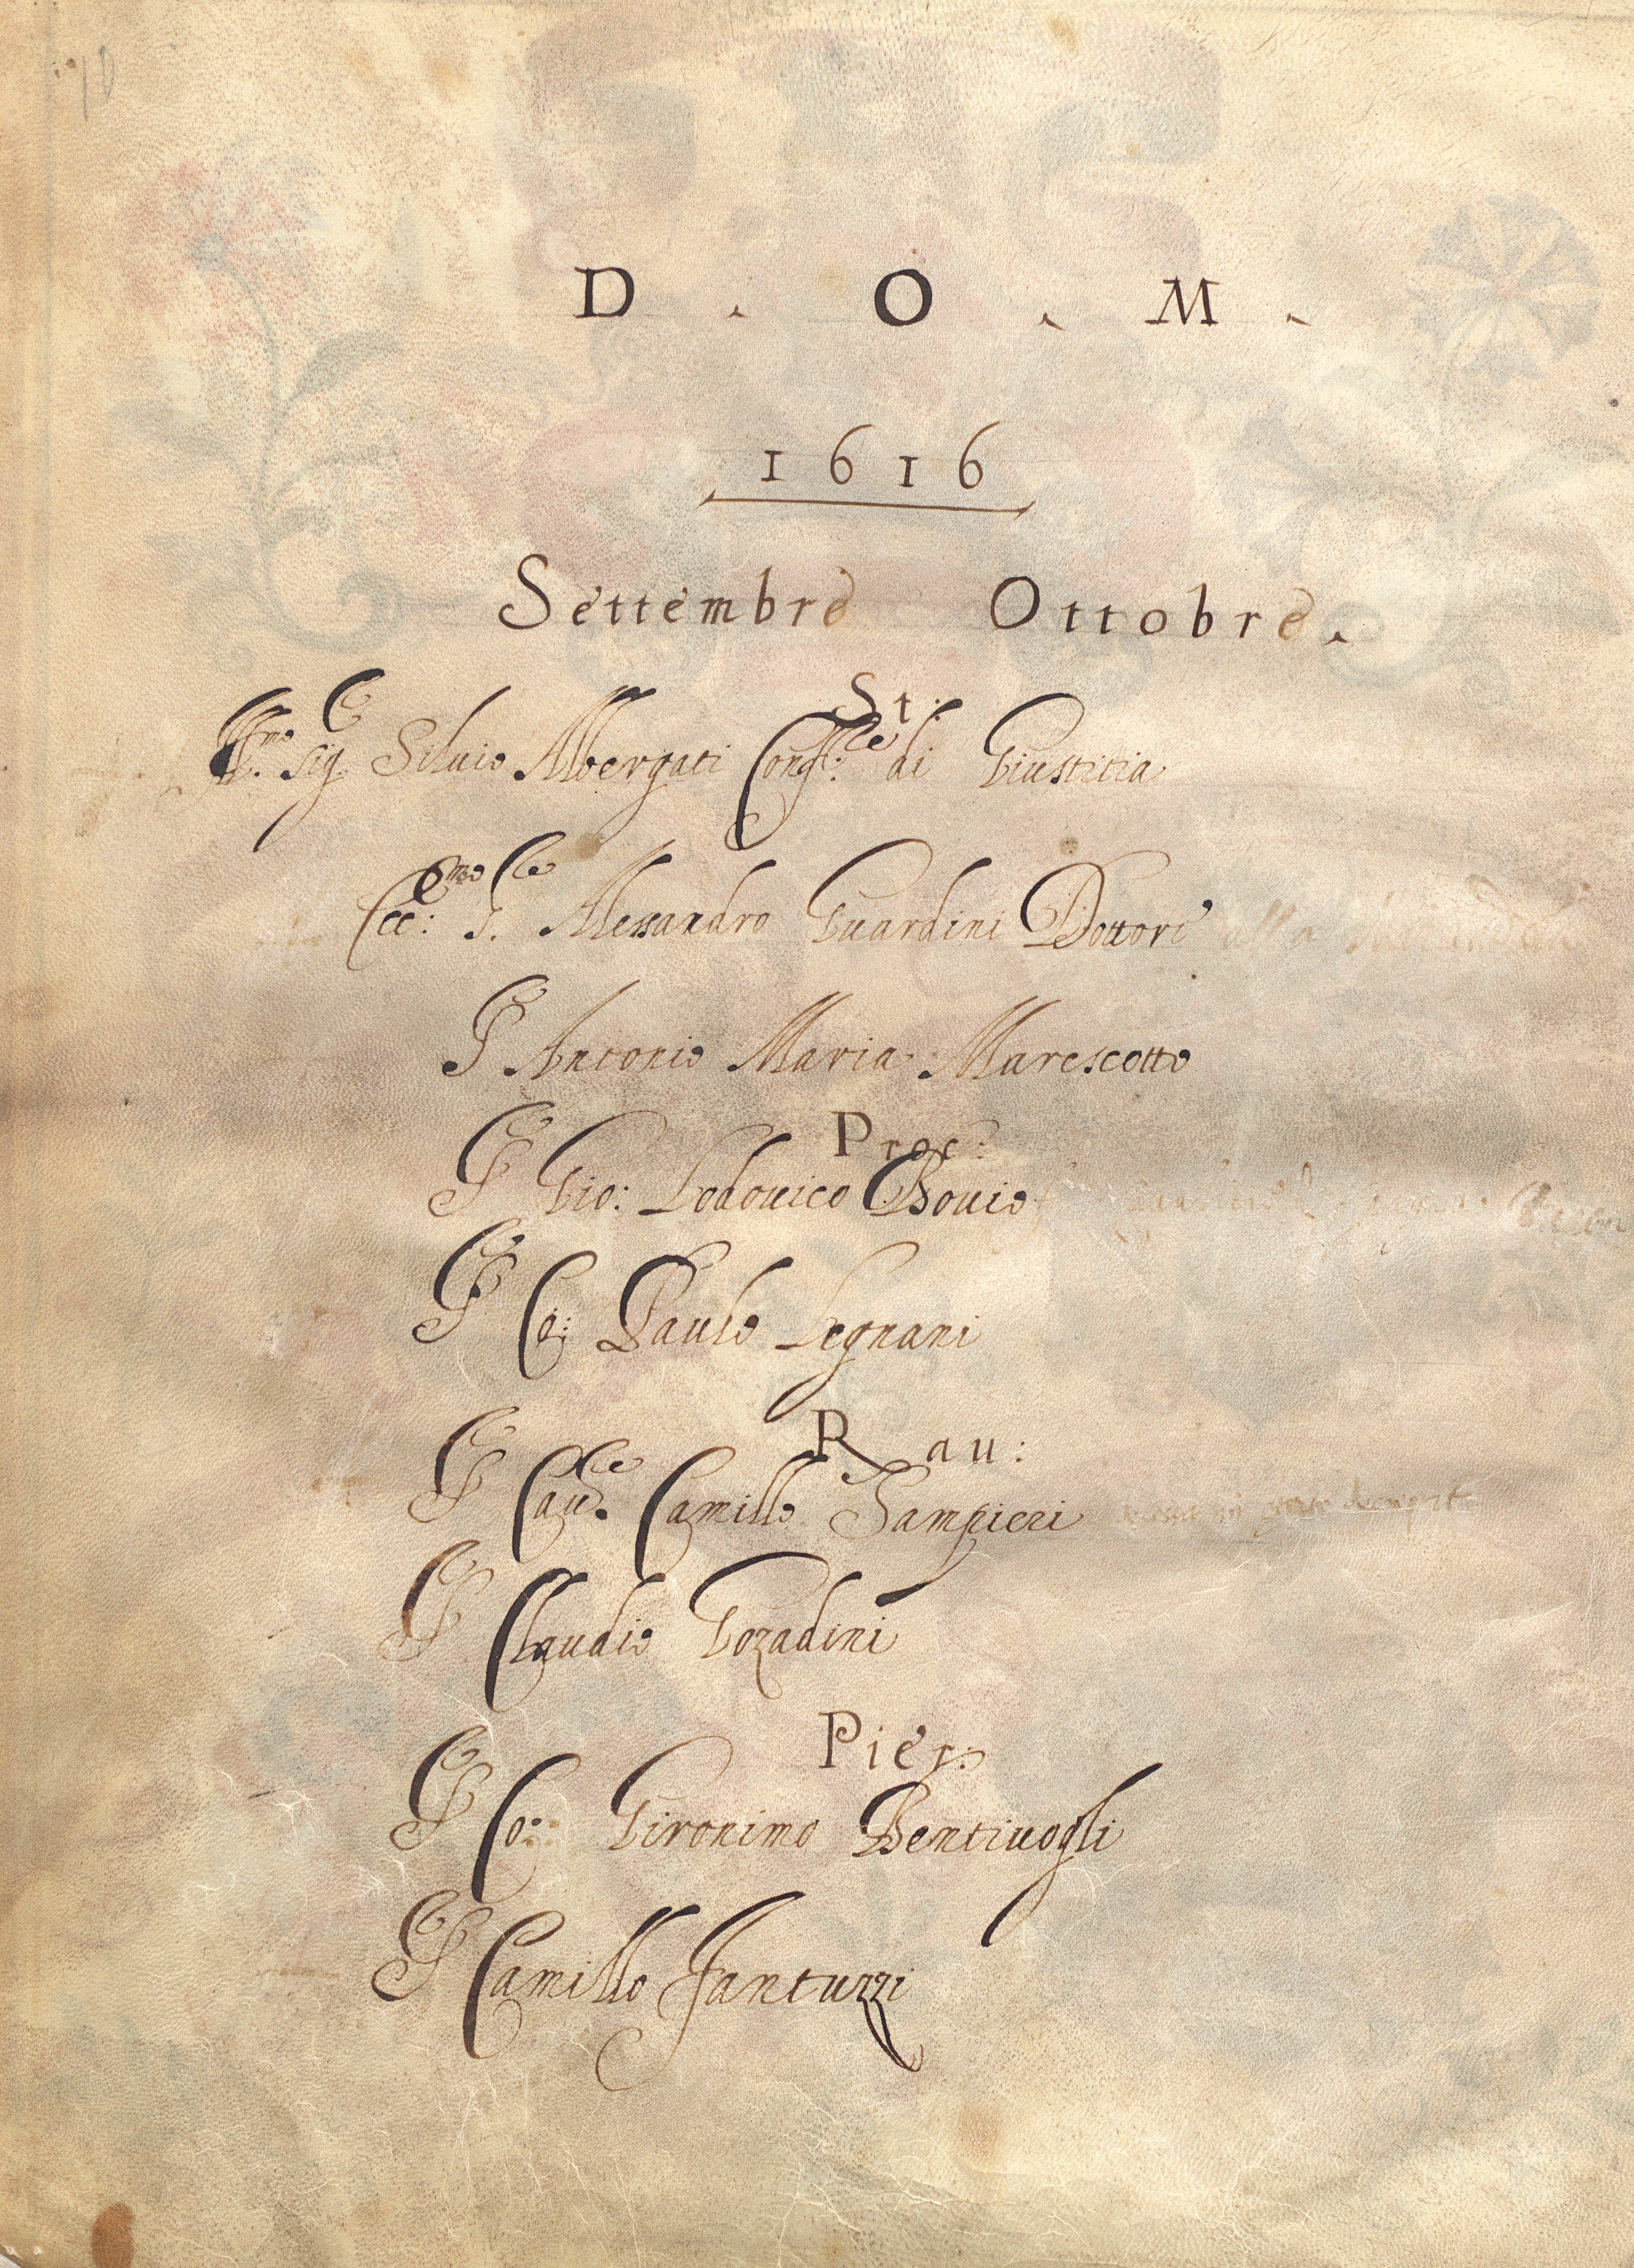 D . O . M .
1616
Settembre Ottobre.
St:
Ill.mo sig. Siluio Albergati Conf.re di Giustitia
Ecc:mo S. Alessandro Guardini Dottore
S Antonio Maria Marescotto
Proc:
S Gio: Lodouico Bouio
S Co: Paulo Legnani
Rau:
S Cau.re Camillo Sampieri
S Claudio Gozadini
Pier:
S Co: Gironimo Bentiuogli
S Camillo Fantuzzi